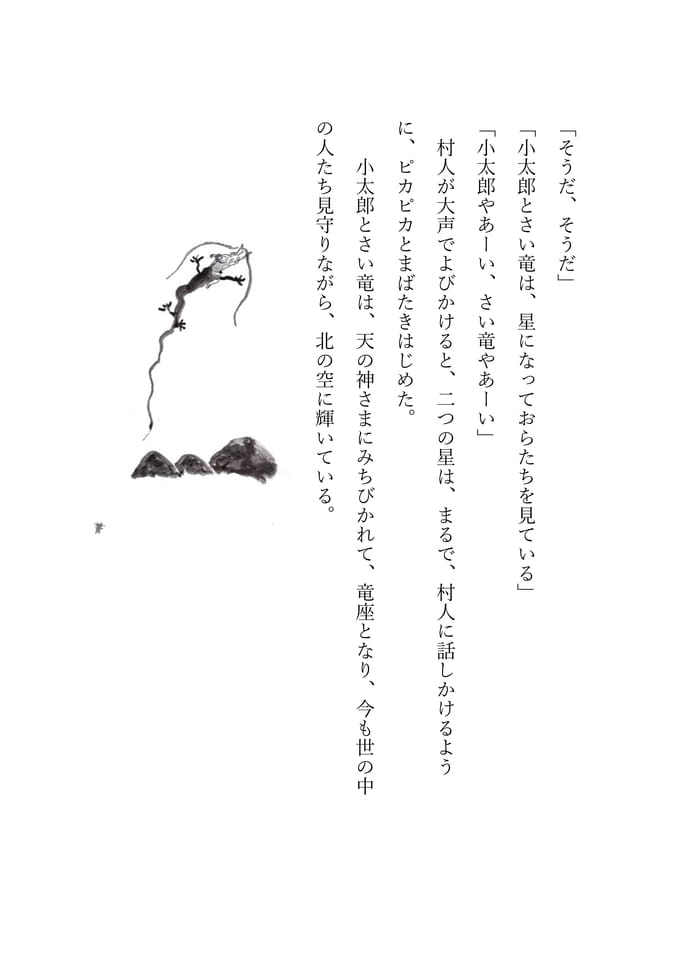 「そうだ、そうだ」
「小太郎とさい竜は、星になっておらたちを見ている」
「小太郎やあーい、さい竜やあーい」
村人が大声でよびかけると、二つの星は、まるで、村人に話しかけるよう
に、ピカピカとまばたきはじめた。
小太郎とさい竜は、天の神さまにみちびかれて、竜座となり、今も世の中
の人たち見守りながら、北の空に輝いている。